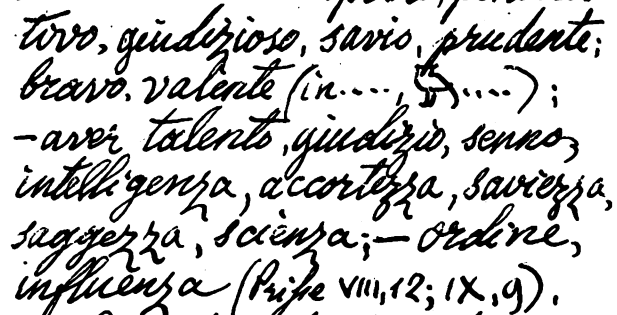 tivo, giudizioso, savio, prudente;
bravo, valente (in...., ....);
– aver talento, giudizio, senno,
intelligenza, accortezza, saviezza,
saggezza, scienza; – ordine,
influenza (VIII, 12; IX, 9).